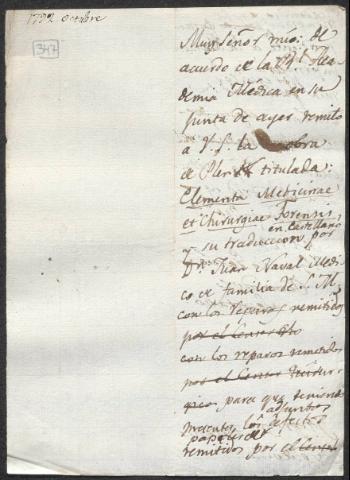 1792 octubre
347
Muy señor mio: de
acuerdo de la Rl. Aca-
demia Médica en su
junta de ayer remito
a V.S. la obra
de Plenk titulada:
Elementa Medicinae
et Chirurgiae Forensis,
en castellano
y su traduccion por
Dn. Juan Naval Medi-
co de familia de S.M.,
con los remitidos
por el Censor
con los reparos remitidos
por el Censor
para que teniendo
adjuntos
presentes los defectos
remitidos por el Censor